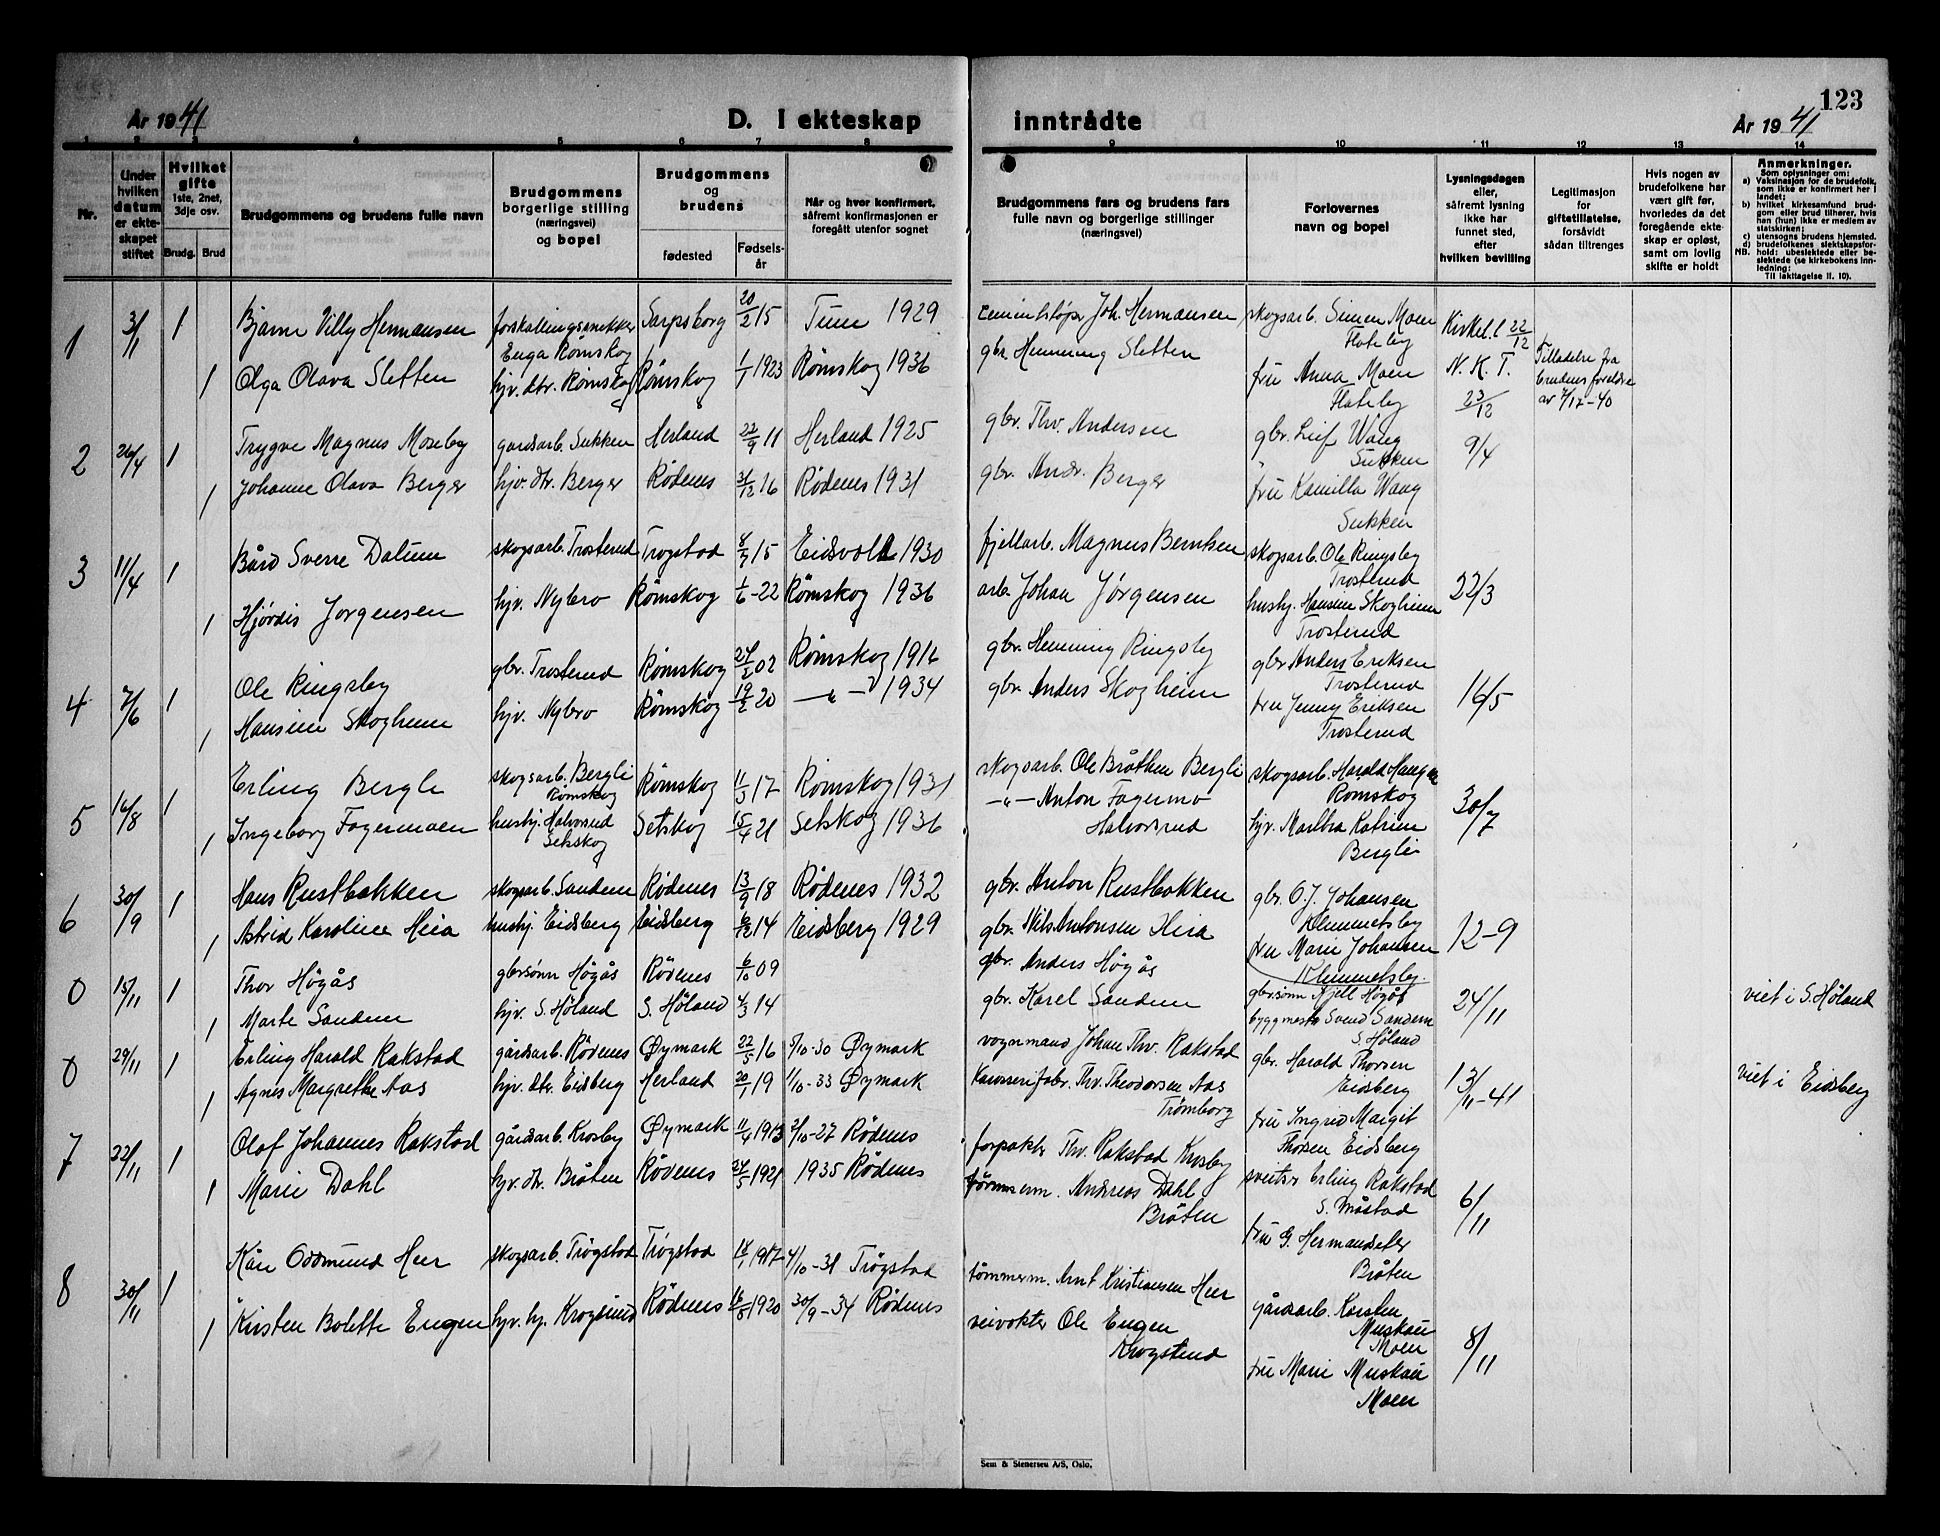 123
År 1941
D. I ekteskap inntrådte
År 1941
1 2 3 4 5 6 7 8 9 10 11 12 13 14
Nr.
Under hvilken datum er ekteskapet stiftet
Hvilket gifte 1ste, 2net, 3dje osv.
Brudg. Brud
Brudgommens og brudens fulle navn
Brudgommens borgerlige stilling (næringsvei) og bopel
Brudgommens og brudens
fødested
Fødsels-år
Når og hvor konfirmert, såfremt konfirmasjonen er foregått utenfor sognet
Brudgommens fars og brudens fars fulle navn og borgerlige stillinger (næringsvei)
Forlovernes navn og bopel
Lysningsdagen eller, såfremt lysning ikke har funnet sted, efter hvilken bevilling
Legitimasjon for giftetillatelse, forsåvidt sådan tiltrenges
Hvis nogen av brudefolkene har vært gift før, hvorledes da det foregående ekteskap er opløst, samt om lovlig skifte er holdt
Anmerkninger.
Som oplysninger om:
a) Vaksinasjon for de brudefolk, som ikke er konfirmert her i landet;
b) hvilket kirkesamfund brudgom eller brud tilhører, hvis han (hun) ikke er medlem av statskirken;
c) utensogns brudens hjemsted.
d) brudefolkenes slektskapsforhold: ubeslektede eller beslektede (se kirkebokens innledning:
NB. Til iakttagelse II. 10).
1 3/1 1 Bjarne Villy Hermansen forskalingssnekker Enga Rømskog Sarpsborg 20/2 15 Tune 1929 Joh. Hermansen skogsarb. Simen Moen Flateby Kirkel. 22/12
1 Olga Olava Sletten hjv. dtr. Rømskog Rømskog 1/1 1923 Rømskog 1936 gbr. Henning Sletten fru Anna Moen Flateby N. K. T. 23/12 Tilladelse fra brudens foreldre av 7/12-40
2 26/4 1 Trygve Magnus Moseby gardsarb. Sukken Herland 22/9 11 Herland 1925 gbr. Thv. Andersen gbr. Leif Wang Sukken 9/4
1 Johanne Olava Berger hjv. dtr. Berger Rødenes 31/12 16 Rødenes 1931 gbr. Andr. Berger fru Kamilla Wang Sukken
3 11/4 1 Bård Sverre Datum skogsarb. Trosterud Trøgstad 8/7 15 Eidsvoll 1930 fjellarb. Magnus Berntsen skogsarb. Ole Ringsby Trosterud 22/3
1 Hjørdis Jørgensen hjv. Nybro Rømskog 1/6-22 Rømskog 1936 arb. Johan Jørgensen hushj. Hansine Skogheim Trosterud
4 2/6 1 Ole Ringsby gbr. Trosterud Rømskog 24/2 02 Rømskog 1916 gbr. Henning Ringsby gbr. Anders Eriksen Trosterud 16/5
1 Hansine Skogheim hjv. Nybro Rømskog 19/2 20 —"— 1934 gbr. Anders Skogheim fru Jenny Eriksen Trosterud
5 16/8 1 Erling Bergli skogsarb. Bergli Rømskog Rømskog 11/3 17 Rømskog 1931 skogsarb. Ole Bråthen Bergli skogsarb. Harald Haugen Rømskog 30/7
1 Ingeborg Fagermoen hushj. Halvorsrud Setskog Setskog 15/4 21 Setskog 1936 —"— Anton Fagermo Halvorsrud hjv. Martha Katrine Bergli
6 30/9 1 Hans Rustbakken skogsarb. Sandem Rødenes 13/9 18 Rødenes 1932 gbr. Anton Rustbakken gbr. O. J. Johansen Klemmetsby 12-9
1 Astrid Karoline Heia hushj. Eidsberg Eidsberg 14 Eidsberg 1929 gbr. Nils Antonsen Heia fru Marie Johansen Klemmetsby.
0 15/11 1 Thor Högås gbr.sönn Högås Rødenes 6/10 09 gbr. Anders Högås gbr.sönn Kjell Högås 24/11 viet i S. Höland
1 Marte Sandem hjv. S. Höland S. Höland 4/3 14 gbr. Karel Sandem byggmester Svend Sandem S. Höland
0 29/11 1 Erling Harald Rakstad gårdsarb. Rödenes Øymark 22/5 16 5/10-30 Øymark vognmand Johan Thv. Rakstad gbr. Harald Thorsen Eidsberg 13/11-41 viet i Eidsberg
1 Agnes Margrethe Aas hjv. dtr. Eidsberg Herland 20/1 19 1/10-33 Øymark Karosserifabr. Thv. Theodorsen Aas Trömborg fru Ingrid Margit Thorsen Eidsberg
7 22/11 1 Olaf Johannes Rakstad gårdsarb. Krosby Øymark 11/4 1913 2/10-27 Rödenes forpakter Thv. Rakstad Krosby sveitser Erling Rakstad S. Måstad 6/11
1 Marie Dahl hjv. dtr. Bråten Rödenes 24/5 1921 1935 Rödenes tömmerm. Andreas Dahl Bråten fru G. Hermandseter Bråten
8 30/11 1 Kåre Oddmund Heer skogsarb. Trögstad Trögstad 14/1 1917 4/10-31 Trögstad tömmerm. Arnt Kristiansen Heer gårdsarb. Karsten Muskau Moen 8/11
1 Kirsten Bolette Engen hjv. hj. Krogstad Rödenes 16/8 1920 30/9-34 Rödenes veivokter Ole Engen Krogstad fru Marie Muskau Moen
Sem & Stenersen A/S, Oslo.